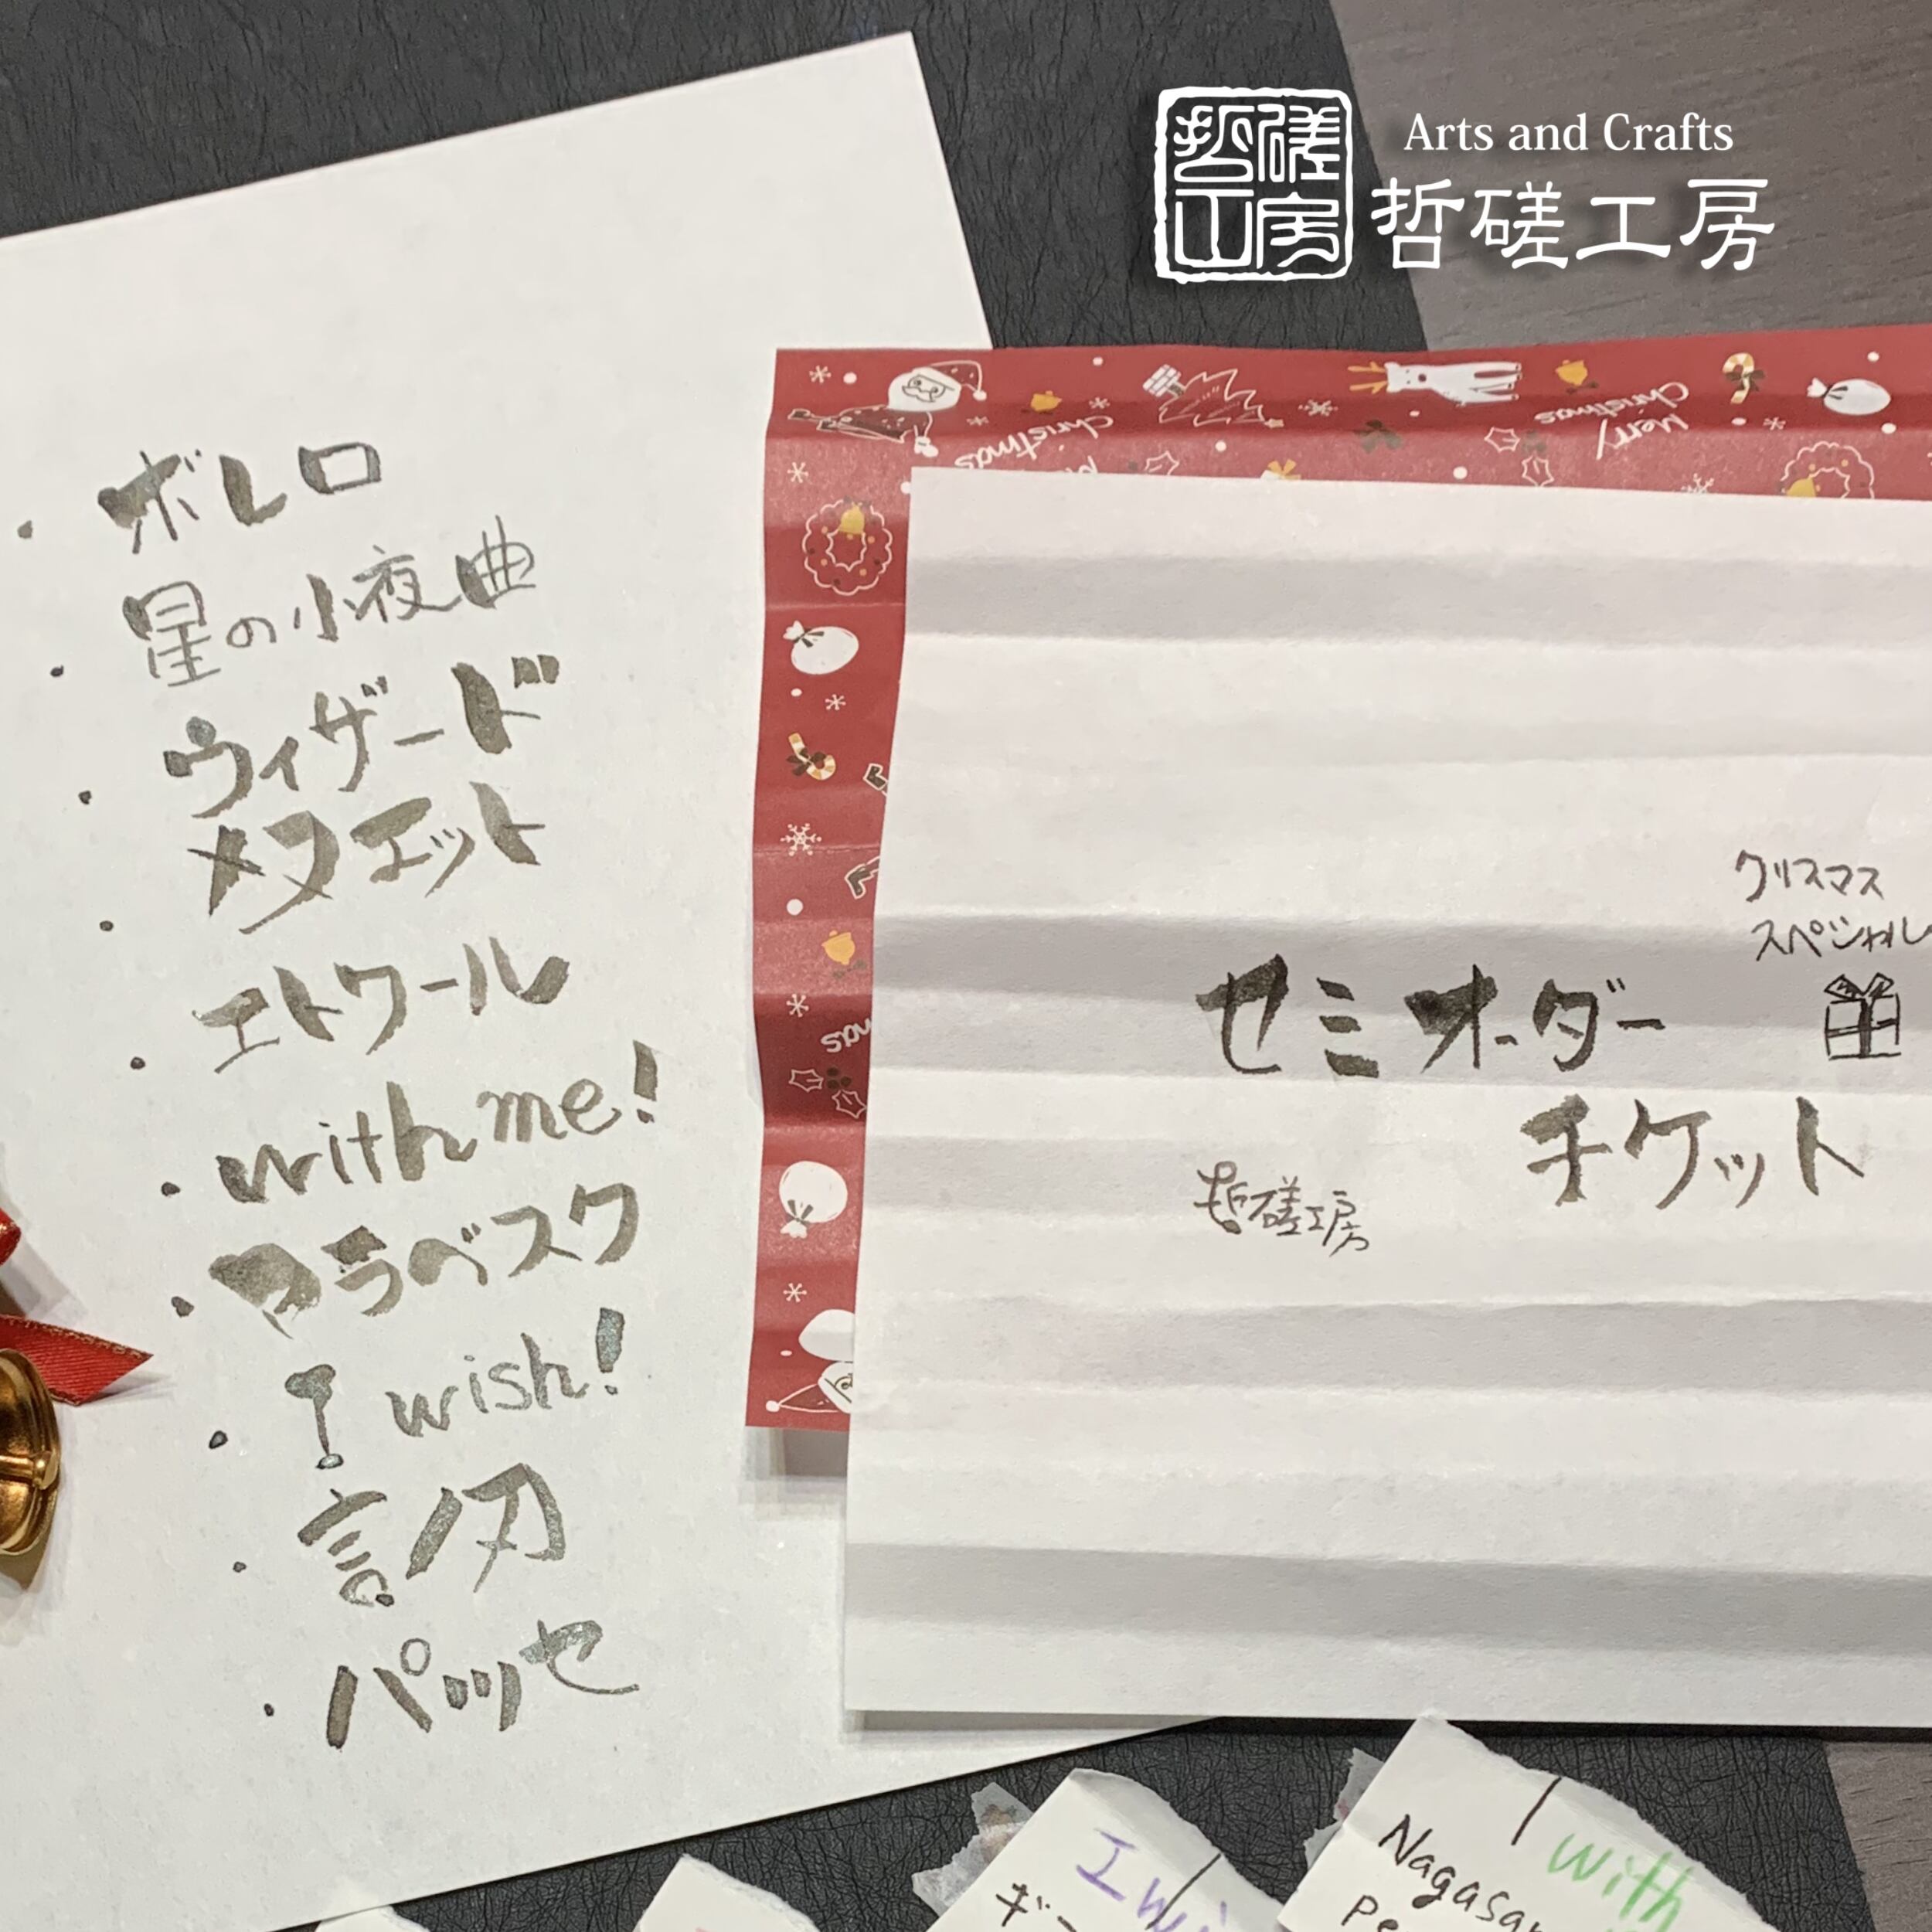 Arts and Crafts
哲磋工房
哲磋工房
・ボレロ
・星の小夜曲
・ウィザード
・メヌエット
・エトワール
・with me!
・アラベスク
・I wish!
・言ノ刃
・パッセ
Christmas
Merry
Christmas
クリスマス
スペシャル
セミオーダー
チケット
哲磋工房
I wi
ギー
with
Nagasa
Pe